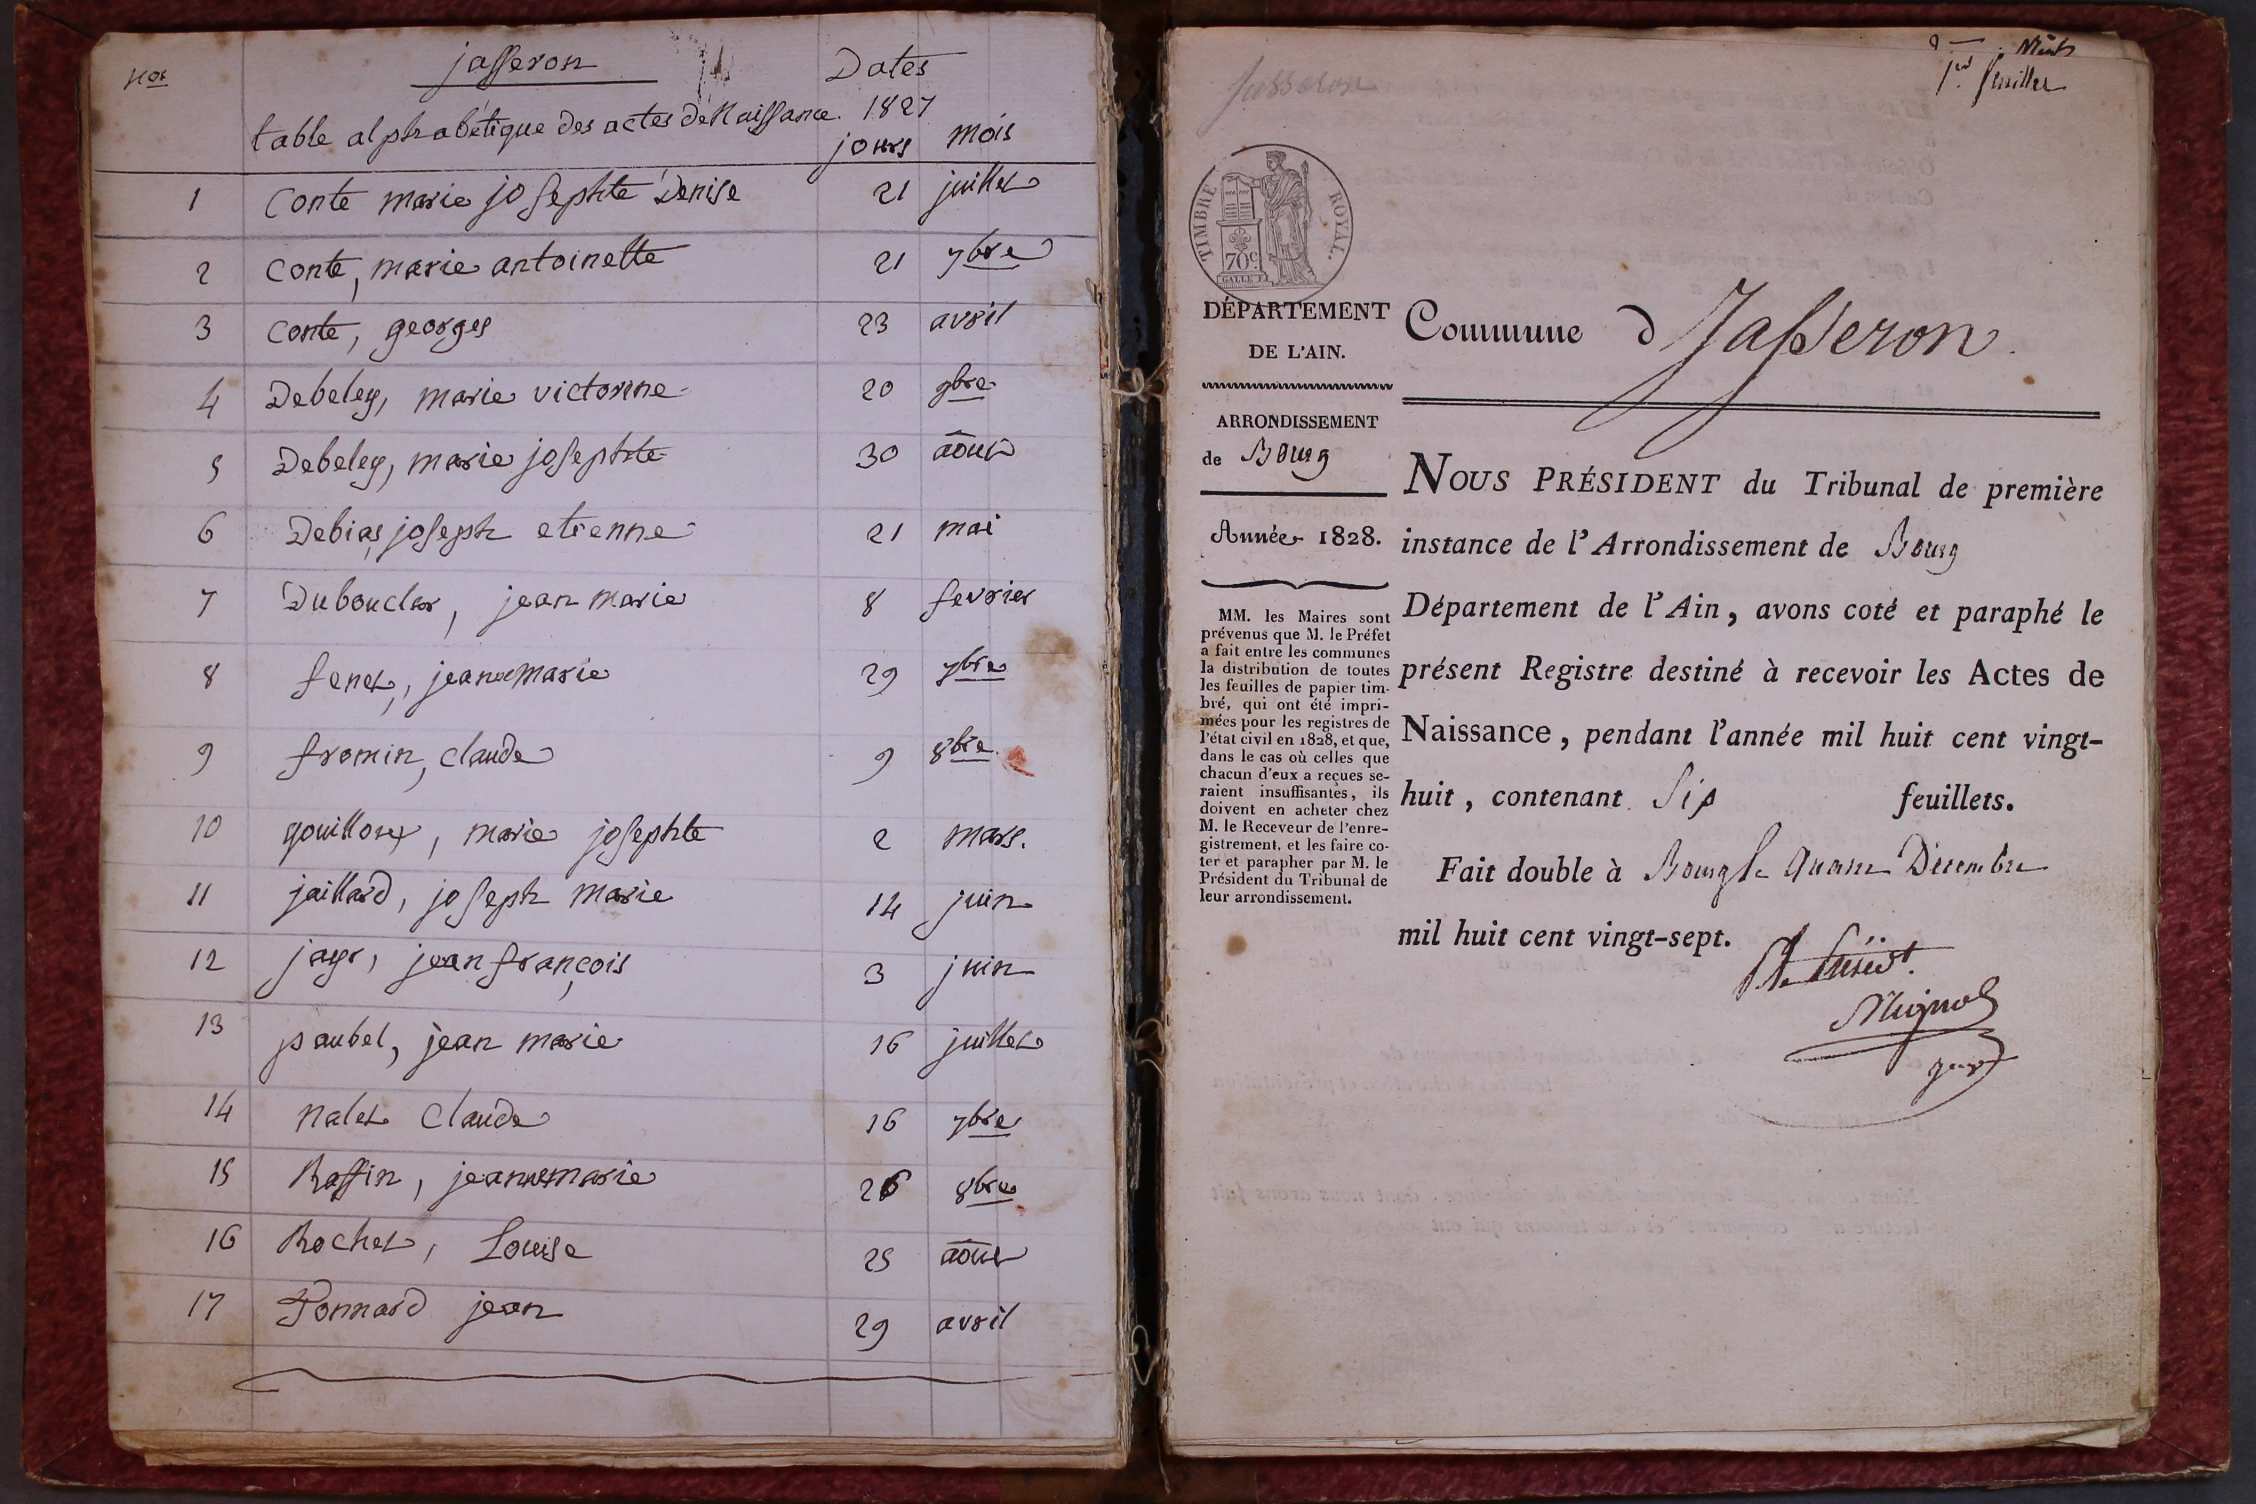 Nos jasseron Dates
table alphabétique des actes de Naissance. 1827
jours mois
1 Conte marie josephte Denise 21 juillet
2 Conte, marie antoinette 21 7bre
3 Conte, georges 23 avril
4 Debeley, marie victorine 20 9bre
5 Debeley, marie josephte 30 août
6 Debias joseph etienne 21 mai
7 Duboucler, jean marie 8 fevrier
8 fenet, jeanemarie 29 7bre
9 fromin, claude 9 8bre
10 gouilloux, marie josephte 2 mars.
11 jaillard, joseph marie 14 juin
12 jayr, jean françois 3 juin
13 paubel, jean marie 16 juillet
14 nalet Claude 16 7bre
15 Raffin, jeannemarie 26 8bre
16 Rochet, Louise 25 août
17 Ponnard jean 29 avril
Jasseron
1er feuillet
TIMBRE ROYAL.
70c.
DÉPARTEMENT
DE L'AIN.
ARRONDISSEMENT
de Bourg
Année 1828.
MM. les Maires sont
prévenus que M. le Préfet
a fait entre les communes
la distribution de toutes
les feuilles de papier tim-
bré, qui ont été impri-
mées pour les registres de
l'état civil en 1828, et que,
dans le cas où celles que
chacun d'eux a reçues se-
raient insuffisantes, ils
doivent en acheter chez
M. le Receveur de l'enre-
gistrement, et les faire co-
ter et parapher par M. le
Président du Tribunal de
leur arrondissement.
Commune d Jasseron.
NOUS PRÉSIDENT du Tribunal de première
instance de l'Arrondissement de Bourg
Département de l'Ain, avons coté et paraphé le
présent Registre destiné à recevoir les Actes de
Naissance, pendant l'année mil huit cent vingt-
huit, contenant Six feuillets.
Fait double à Bourg le Decembre
mil huit cent vingt-sept.